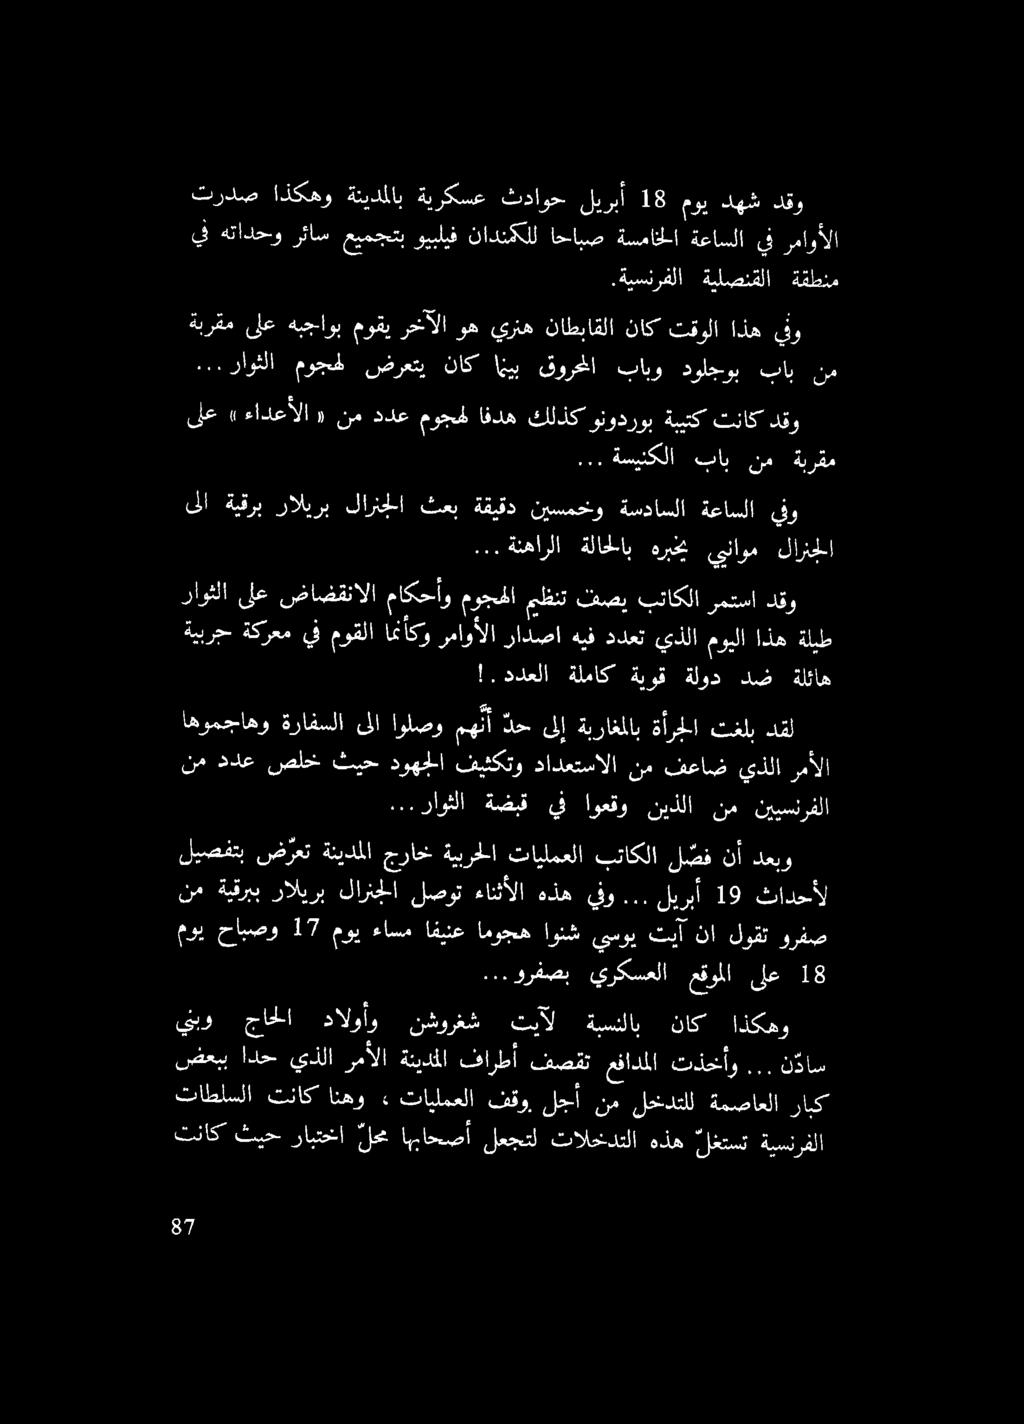 وقد شهد يوم 18 أبريل حوادث عسكرية بالمدينة وهكذا صدرت
الأوامر في الساعة الخامسة صباحا للكمندان فيلبيو بتجميع سائر وحداته في
منطقة القنصلية الفرنسية.
وفي هذا الوقت كان القابطان هنري هو الآخر يقوم بواجبه على مقربة
من باب بوجلود وباب المحروق بينما كان يتعرض لهجوم الثوار ...
وقد كانت كتيبة بوردونو كذلك هدفا لهجوم عدد من « الأعداء » على
مقربة من باب الكنيسة ...
وفي الساعة السادسة وخمسين دقيقة بعث الجنرال بريلار برقية الى
الجنرال موانيي يخبره بالحالة الراهنة ...
وقد استمر الكاتب يصف تنظيم الهجوم وأحكام الانقضاض على الثوار
طيلة هذا اليوم الذي تعدد فيه اصدار الأوامر وكأنما القوم في معركة حربية
هائلة ضد دولة قوية كاملة العدد .!
لقد بلغت الجرأة بالمغاربة إلى حدّ أنّهم وصلوا الى السفارة وهاجموها
الأمر الذي ضاعف من الاستعداد وتكثيف الجهود حيث خلص عدد من
الفرنسيين من الذين وقعوا في قبضة الثوار ...
وبعد أن فصّل الكاتب العمليات الحربية خارج المدينة تعرّض بتفصيل
لأحداث 19 أبريل ... وفي هذه الأثناء توصل الجنرال بريلار ببرقية من
صفرو تقول ان آيت يوسي شنوا هجوما عنيفا مساء يوم 17 وصباح يوم
18 على الموقع العسكري بصفرو ...
وهكذا كان بالنسبة لآيت شغروشن وأولاد الحاج وبني
سادّن ... وأخذت المدافع تقصف أطراف المدينة الأمر الذي حدا ببعض
كبار العاصمة للتدخل من أجل وقف العمليات ، وهنا كانت السلطات
الفرنسية تستغلّ هذه التدخلات لتجعل أصحابها محلّ اختبار حيث كانت
87